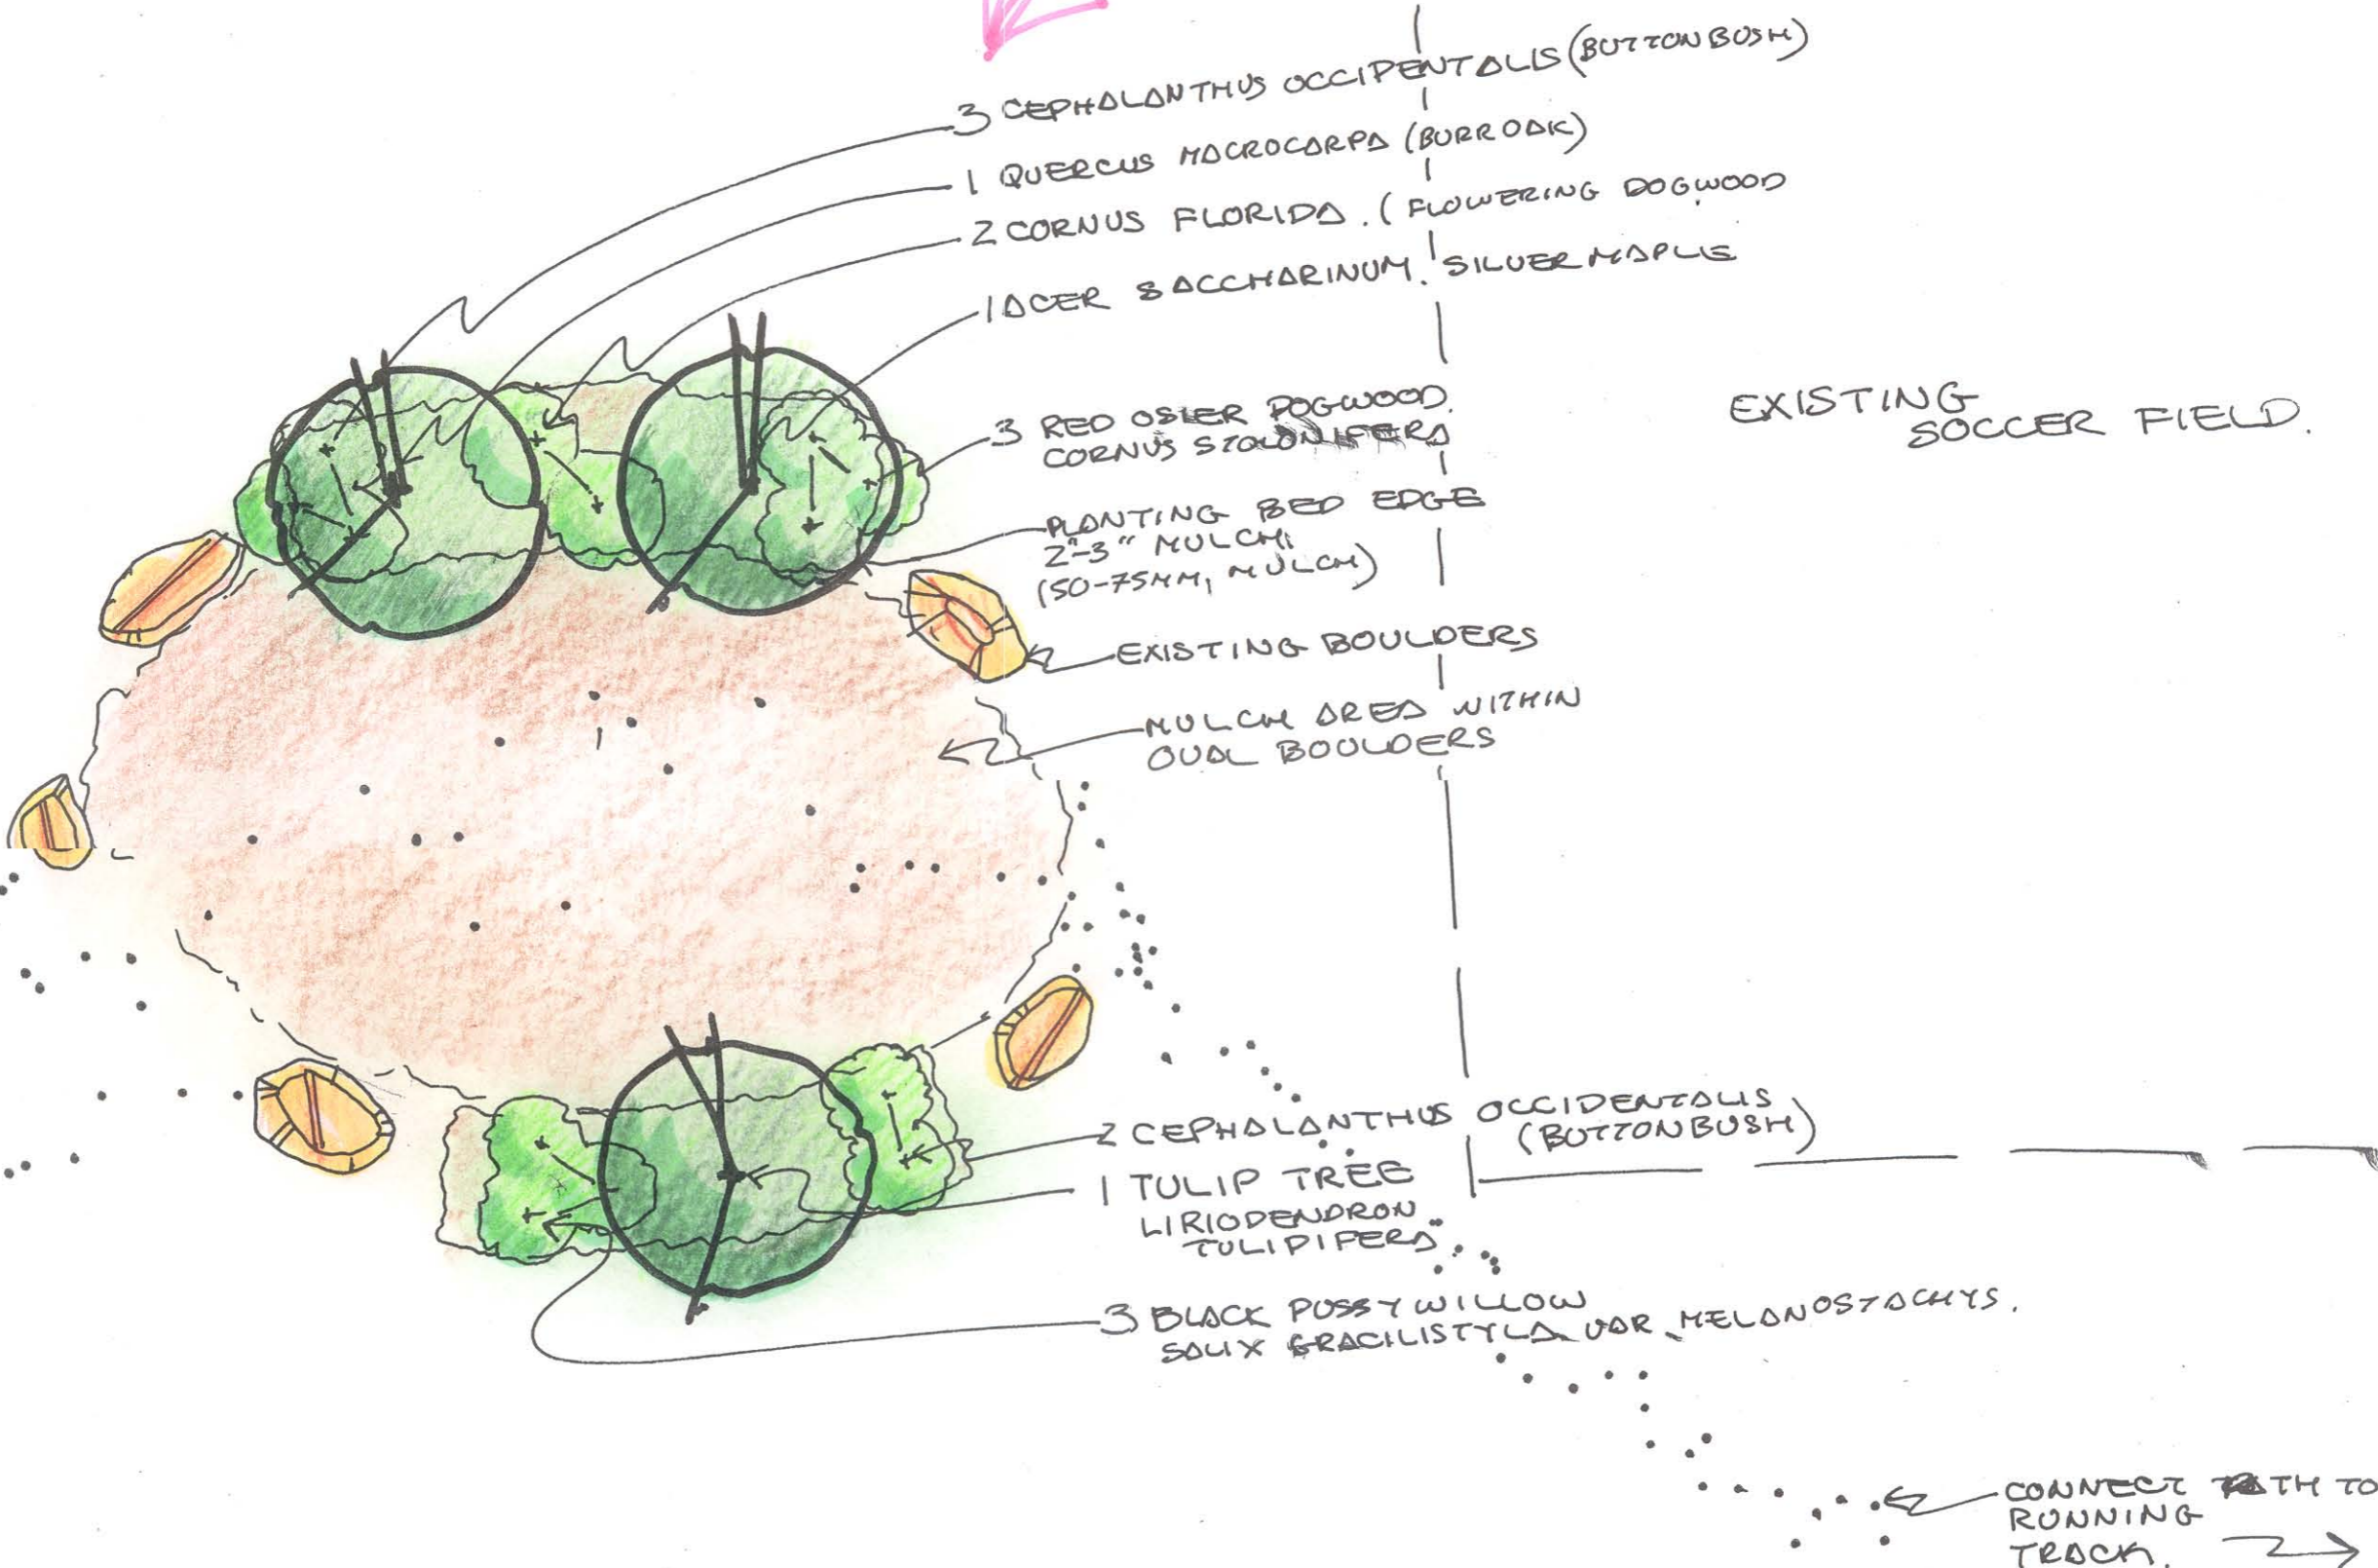 3 CEPHALANTHUS OCCIPENTALIS (BUTTONBUSH)
1 QUERCUS MACROCARPA (BURR OAK)
2 CORNUS FLORIDA. (FLOWERING DOGWOOD
1 ACER SACCHARINUM. SILVER MAPLE
3 RED OSIER DOGWOOD.
CORNUS STOLONIFERA
EXISTING
SOCCER FIELD.
PLANTING BED EDGE
2"-3" MULCH
(50-75MM, MULCH)
EXISTING BOULDERS
MULCH AREA WITHIN
OVAL BOULDERS
2 CEPHALANTHUS OCCIDENTALIS
(BUTTONBUSH)
1 TULIP TREE
LIRIODENDRON
TULIPIFERA
3 BLACK PUSSYWILLOW
SALIX GRACILISTYLA VAR. MELANOSTACHYS.
CONNECT PATH TO
RUNNING
TRACK.